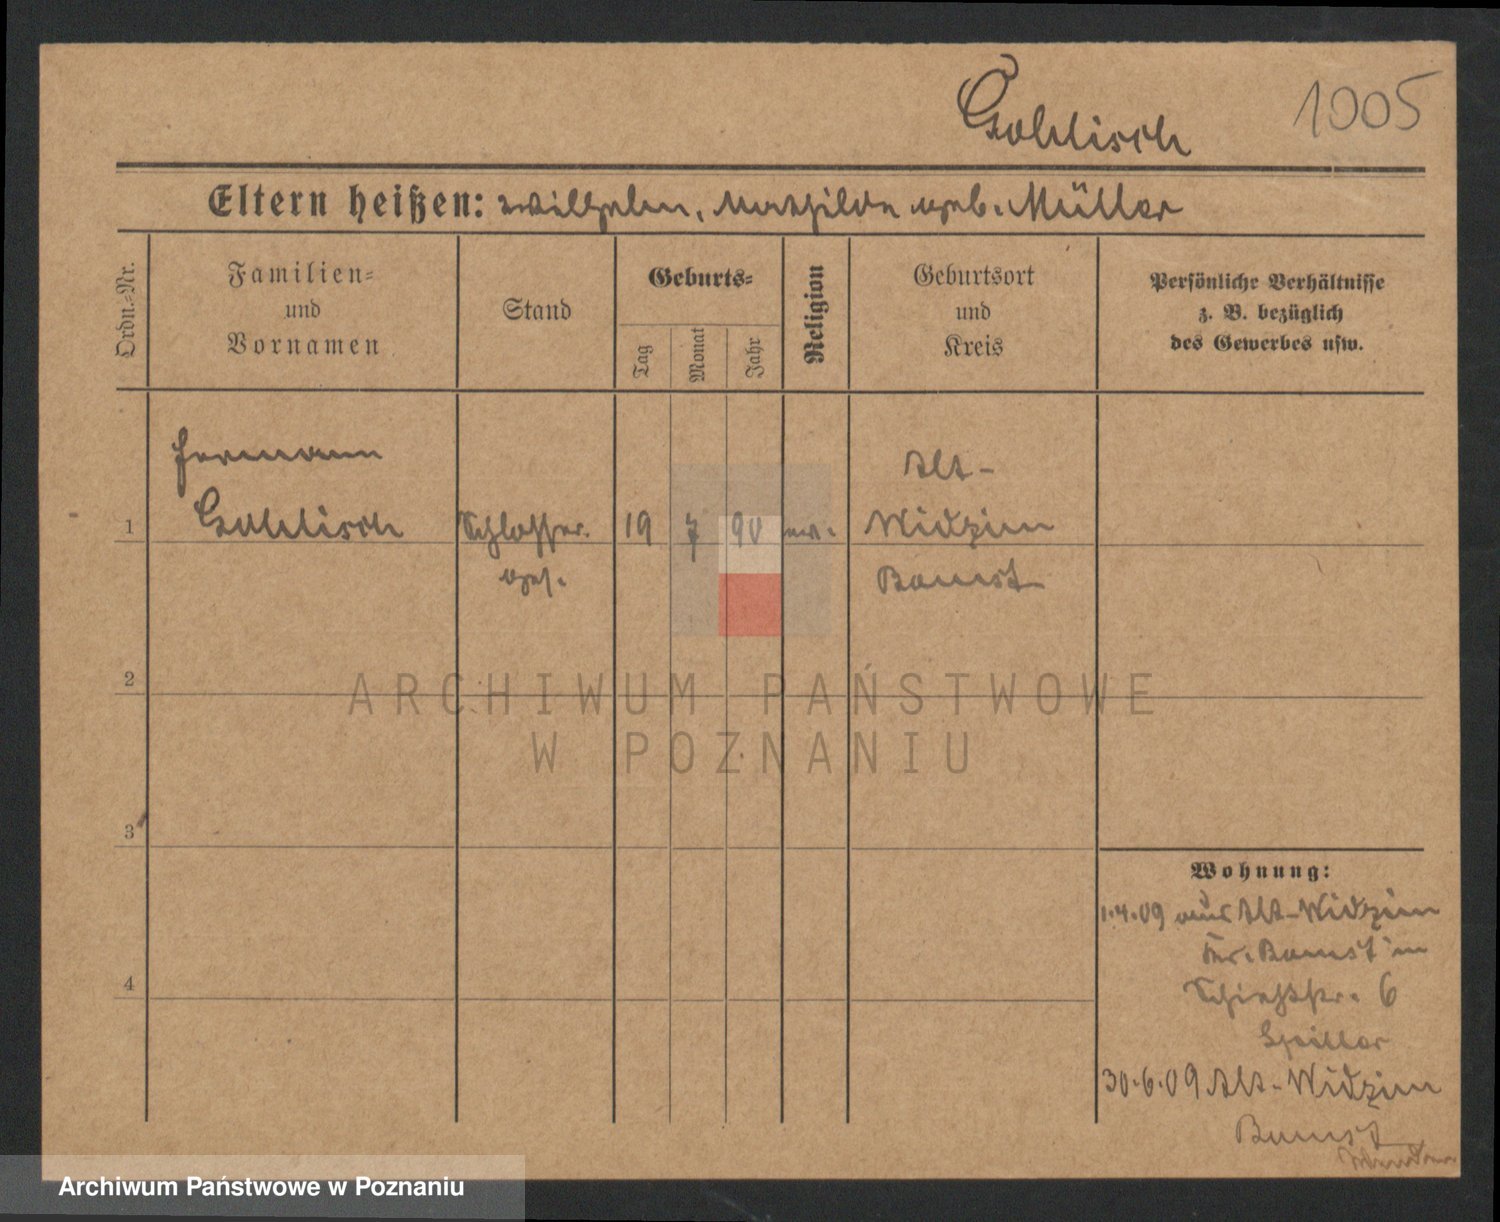 Gohlisch 1005
Eltern heißen: Wilhelm, Mathilde geb. Müller
Ordn.-Nr.
Familien-
und
Vornamen
Stand
Geburts-
Tag
Monat
Jahr
Religion
Geburtsort
und
Kreis
Persönliche Verhältnisse
z. B. bezüglich
des Gewerbes usw.
Hermann
Alt-
1 Gohlisch Schlosser- 19 7 90 ev. Widzim
ges. Bomst
2
ARCHIWUM PAŃSTWOWE
W POZNANIU
3
Wohnung:
1.4.09 aus Alt-Widzim
Kr. Bomst in
4
Schießstr. 6
30.6.09 Alt-Widzim
Bomst
Archiwum Państwowe w Poznaniu